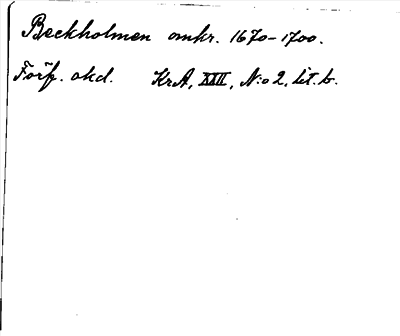 Beckholmen omkr. 1670-1700.
Förf. okd. KrA, XXII, N:o 2, lit. b.